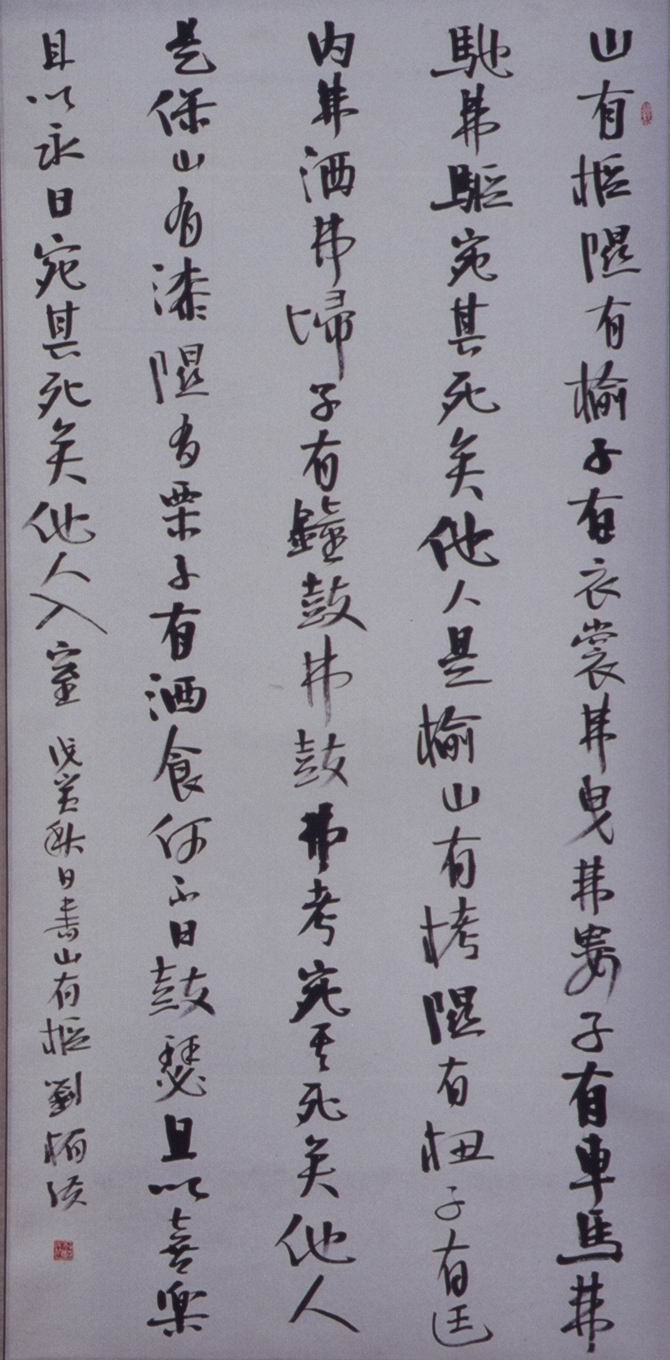 山有樞隰有榆子有衣裳弗曳弗婁子有車馬弗
馳弗驅宛其死矣他人是榆山有栲隰有杻子有廷
内弗洒弗埽子有鐘鼓弗鼓弗考宛其死矣他人
是保山有漆隰有栗子有酒食何不日鼓瑟且以喜樂
且以永日宛其死矣他人入室 戊寅秋日書山有樞 劉